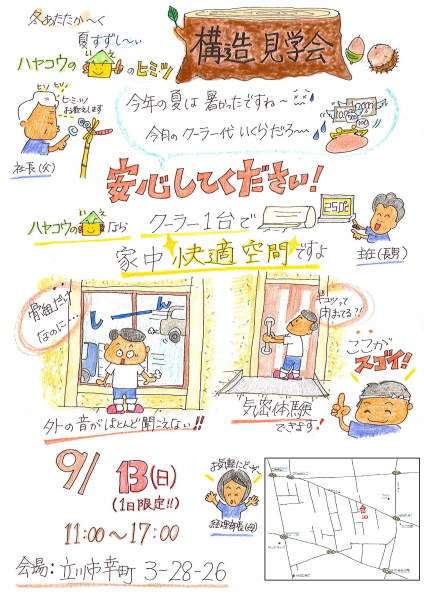 冬あたたか〜く
夏すずし〜い
ハヤコウの
のヒミツ
構造見学会
ヒソ ヒソ
ヒ・ミ・ツ
お教えします
社長(父)
今年の夏は 暑かったですね〜
今月の クーラー代 いくらだろ〜
安心してください!
ハヤコウの
なら
クーラー1台で
25.0℃
主任(長男)
家中 快適空間ですよ
骨組だけ
なのに…
しーん
外の音がほとんど聞こえない!!
ギュッって
閉まってる?!
気密体験
できます!
ここが
スゴイ!
9/13(日)
(1日限定!!)
11:00〜17:00
会場:立川市幸町 3-28-26
お気軽にどーぞ
経理部長(母)